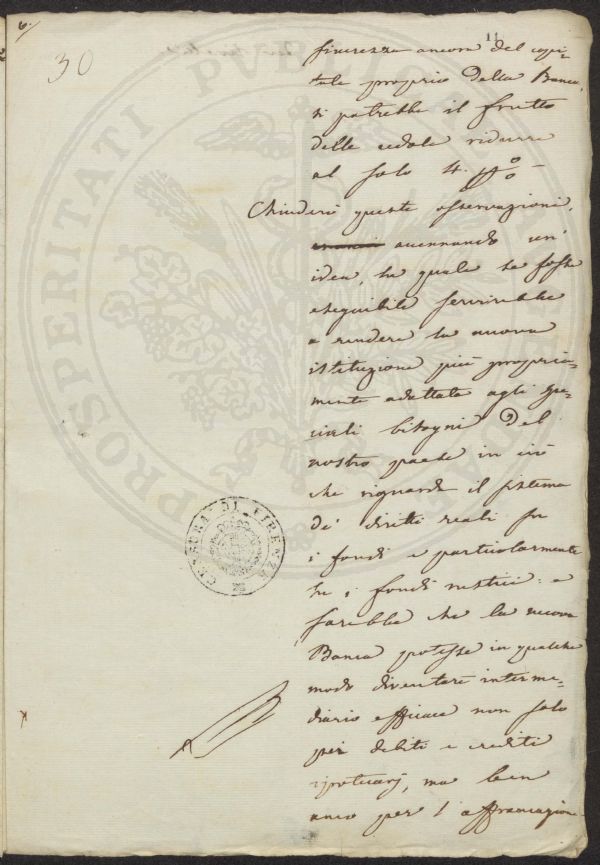 6.
11
30
sicurezza ancora del capi-
tale proprio della Banca,
si potrebbe il frutto
delle cedole ridurre
al solo 4. p%
Chiuderò queste osservazioni,
accennando un'
idea, la quale se fosse
eseguibile servirebbe
a rendere la nuova
istituzione più propria-
mente adattata agli spe-
ciali bisogni del
nostro paese in ciò
che riguarda il sistema
de' diritti reali su
i fondi e particolarmente
su i fondi rustici: e
sarebbe che la nuova
Banca potesse in qualche
modo diventare interme-
diario efficace non solo
per debiti e crediti
ipotecarj, ma ben
anco per l'affrancazione
CENSURA DI FIRENZE
PROSPERITATI PUBLICAE